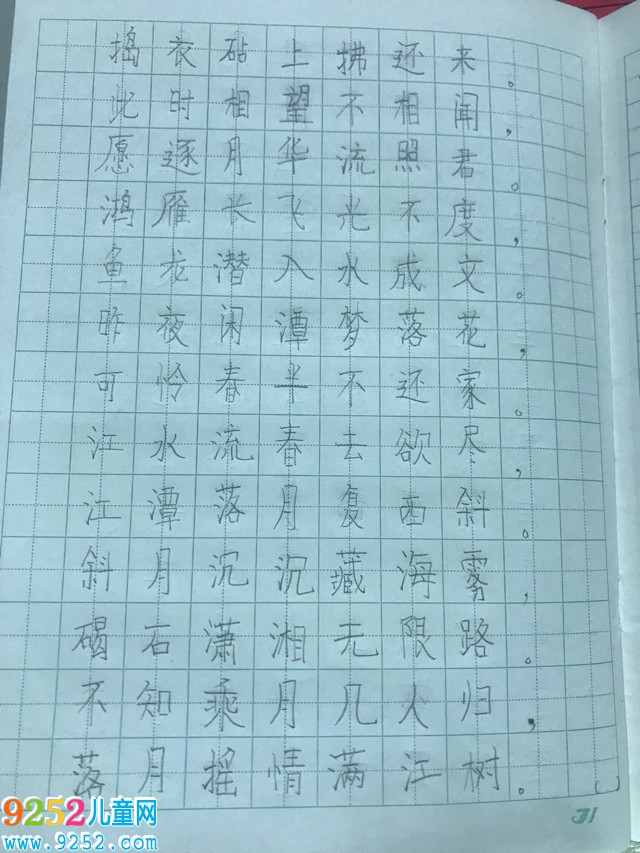 捣衣砧上拂还来。
此时相望不相闻，
愿逐月华流照君。
鸿雁长飞光不度，
鱼龙潜入水成文。
昨夜闲潭梦落花，
可怜春半不还家。
江水流春去欲尽，
江潭落月复西斜。
斜月沉沉藏海雾，
碣石潇湘无限路。
不知乘月几人归，
落月摇情满江树。
31
9252儿童网
www.9252.com